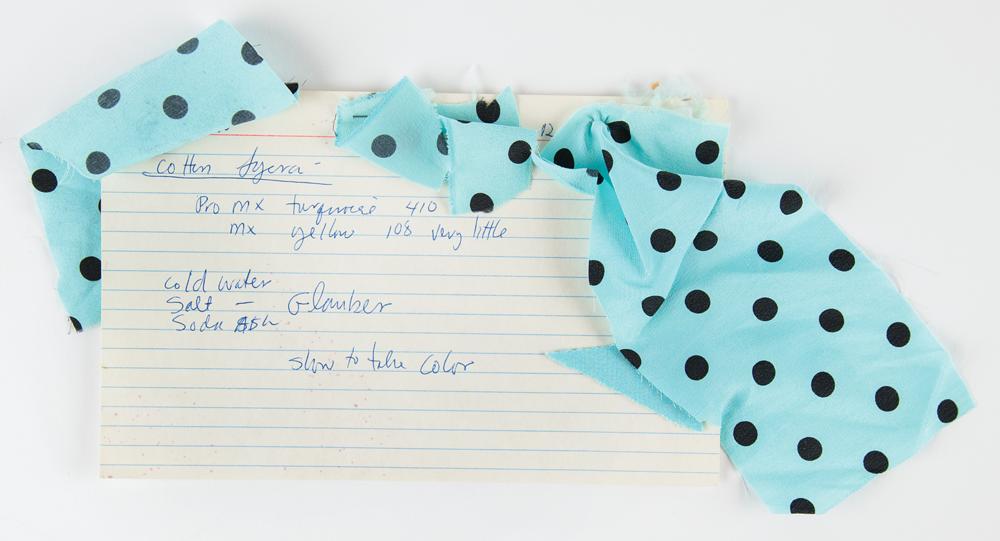 12
Cotton
Pro mx turquoise 410
mx yellow 108 very little
cold water
Salt - Glauber
Soda Ash
slow to take color